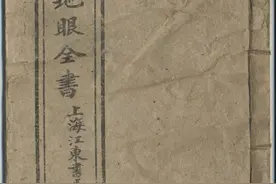 地眼全書
上海江東書